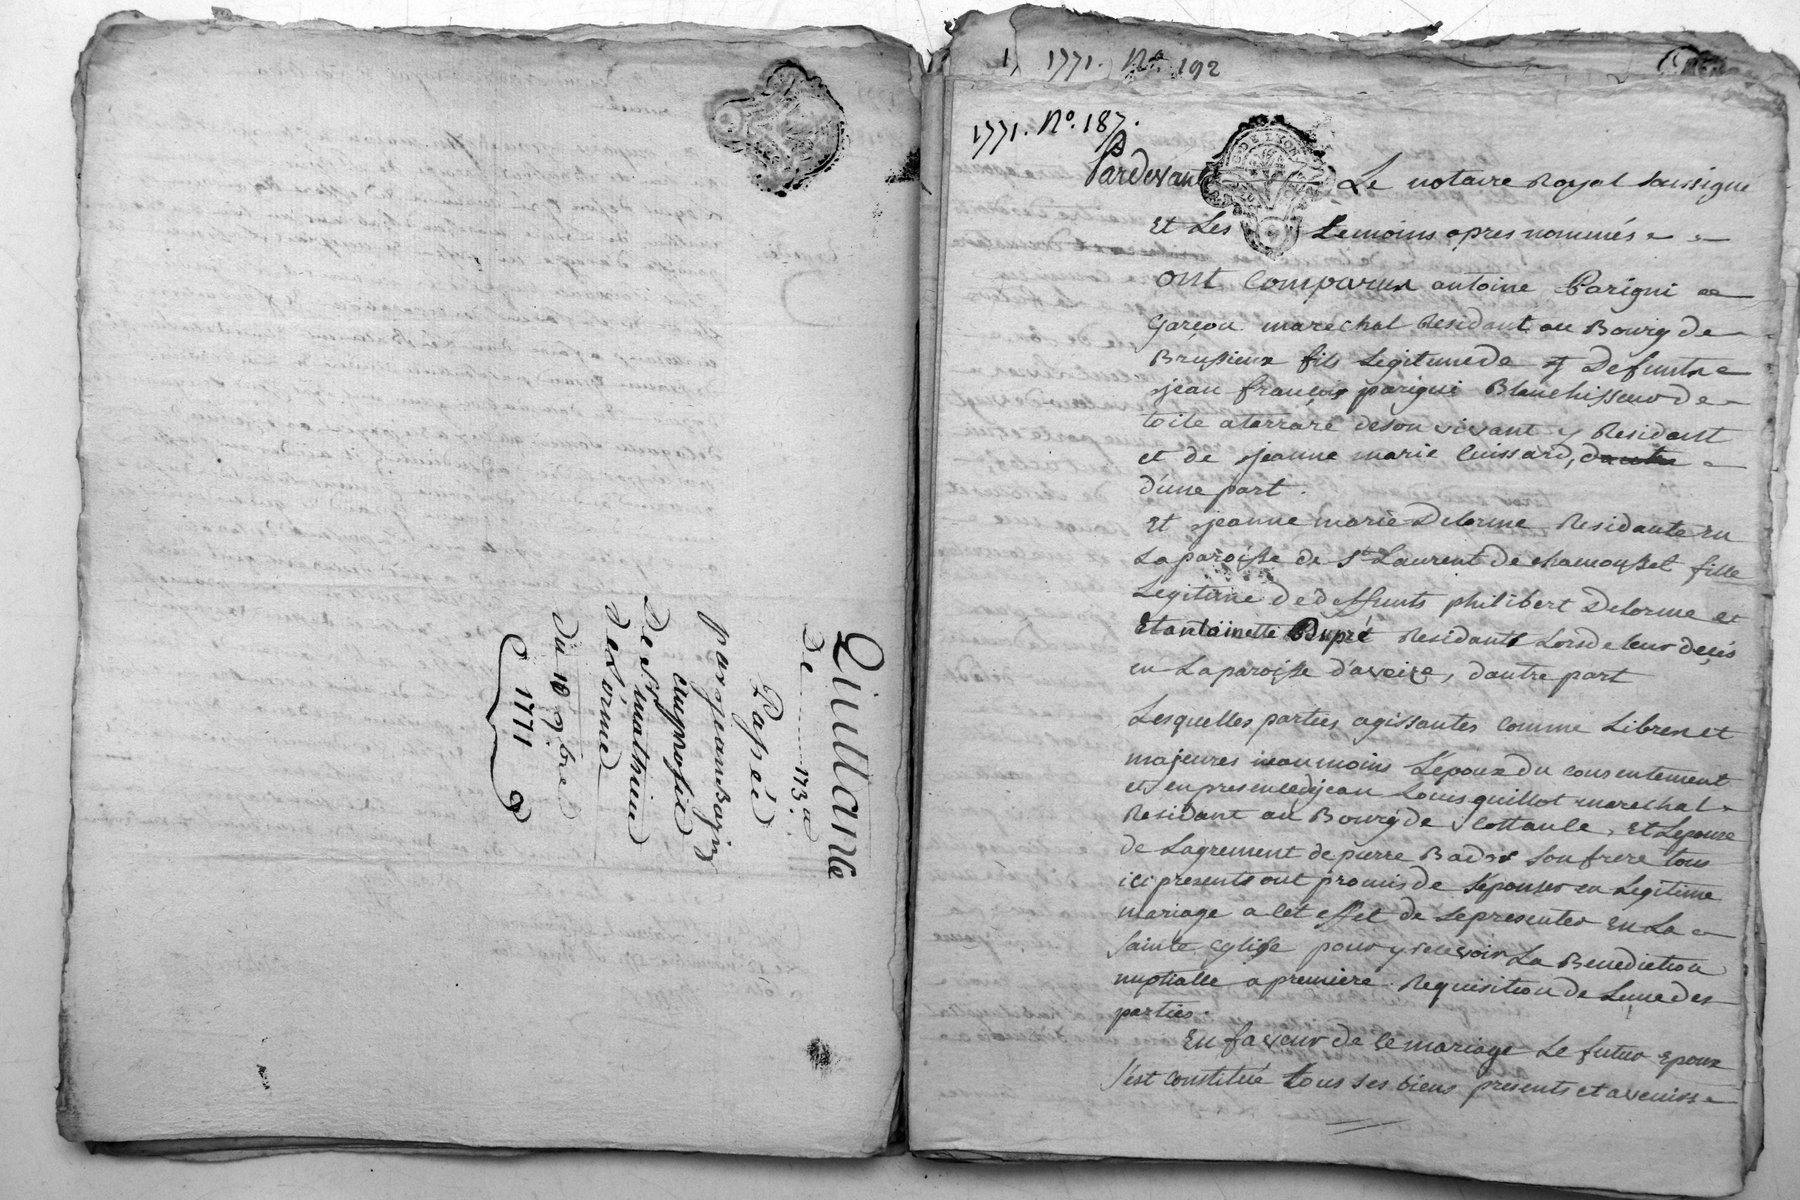 Quittance
de 173.ᵗᵗ
Passée
par jean Bazin
au profit
De Sr mathieu
deLorme
du 10 9.bre
1771
1771. No. 192
1771. No. 187.
Pardevant Le notaire Royal soussigné
Et Les temoins apres nommés
ont comparux antoine Parigni
Garçon marechal Residant au Bourg de
Brussieux fils Legitime de Defunt
jean françois parigni Blanchisseur de
toile a tarrare de son vivant y Residant
et de jeanne marie Cuissard, dautre
d'une part.
Et jeanne marie Delorme Residante en
La paroisse de St Laurent de chamousset fille
Legitime de deffunts philibert Delorme et
Et antoinette Dupré Residants Lors de leur decès
en La paroisse d'aveize, dautre part
Lesquelles parties agissantes comme Libres et
majeures neanmoins L'epoux du consentement
et en presence de jean Louis quillot marechal
Residant au Bourg de Cottance, Et L'epouse
de Lagrement de pierre Bador son frere tous
ici presents ont promis de s'épouser en Legitime
mariage a cet effet de se presenter En La
Sainte Eglise pour y recevoir La Benediction
nuptialle a premiere Requisition de L'une des
parties.
En faveur de ce mariage Le futur Epoux
s'est constitué tous ses biens presents et avenirs